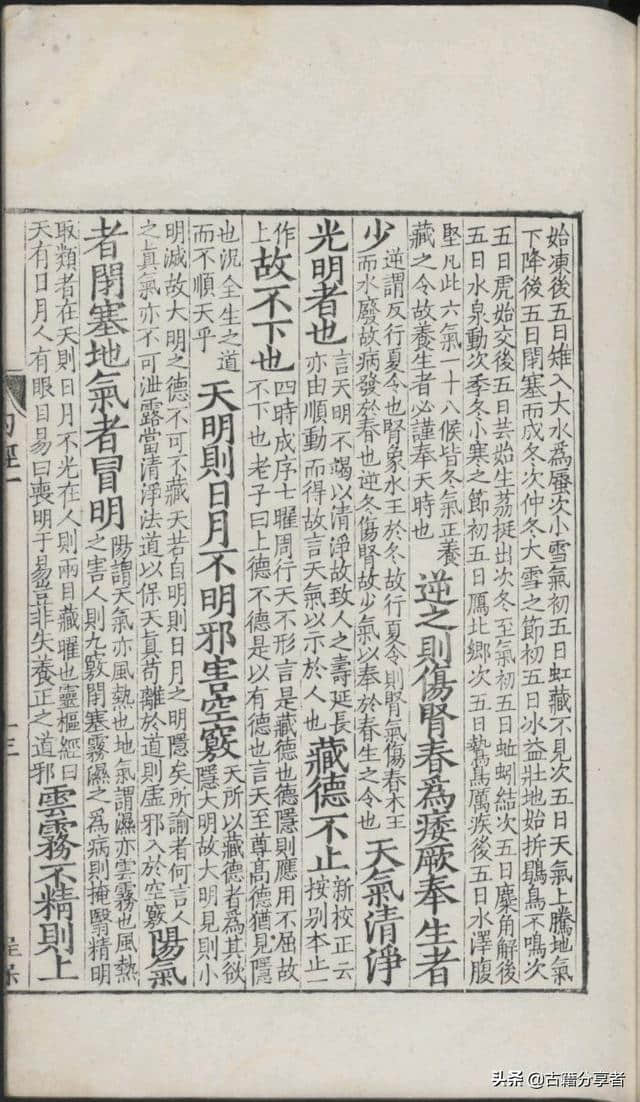 始凍後五日雉入大水爲蜃次小雪氣初五日虹藏不見次五日天氣上騰地氣
下降後五日閉塞而成冬次仲冬大雪之節初五日冰益壯地始折鶡鳥不鳴次
五日虎始交後五日芸始生荔挺出次冬至氣初五日蚯蚓結次五日麋角解後
五日水泉動次季冬小寒之節初五日鴈北鄉次五日鷙鳥厲疾後五日水澤腹
堅凡此六氣一十八候皆冬氣正養
藏之令故養生者必謹奉天時也
逆之則傷腎春爲痿厥奉生者
少
逆謂反行夏令也腎象水王於冬故行夏令則腎氣傷春木王
而水廢故病發於春也逆冬傷腎故少氣以奉於春生之令也
天氣清淨
光明者也
言天明不竭以清淨故致人之壽延長
亦由順動而得故言天氣以示於人也
藏德不止
新校正云
按别本止一
作
上
故不下也
四時成序七曜周行天不形言是藏德也德隱則應用不屈故
不下也老子曰上德不德是以有德也言天至尊高德猶見隱
也況全生之道
而不順天乎
天明則日月不明邪害空竅
天所以藏德者爲其欲
隱大明故大明見則小
明滅故大明之德不可不藏天若自明則日月之明隱矣所諭者何言人
之真氣亦不可泄露當清淨法道以保天真苟離於道則虛邪入於空竅
陽氣
者閉塞地氣者冒明
陽謂天氣亦風熱也地氣謂濕亦雲霧也風熱
之害人則九竅閉塞霧濕之爲病則掩翳精明
取類者在天則日月不光在人則兩目藏曜也靈樞經曰
天有日月人有眼目易曰喪明于易豈非失養正之道邪
雲霧不精則上
内經一
十三
头条 @古籍分享者